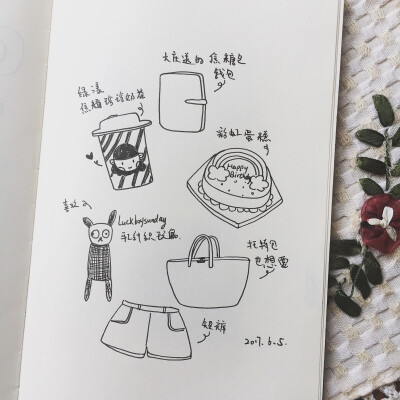 大庄送的焦糖包
钱包
绿漾
焦糖珍珠奶茶
彩虹蛋糕
Happy
Birthday
喜欢
Luckboysunday
托特包
也想要
短裤
2017.6.5.